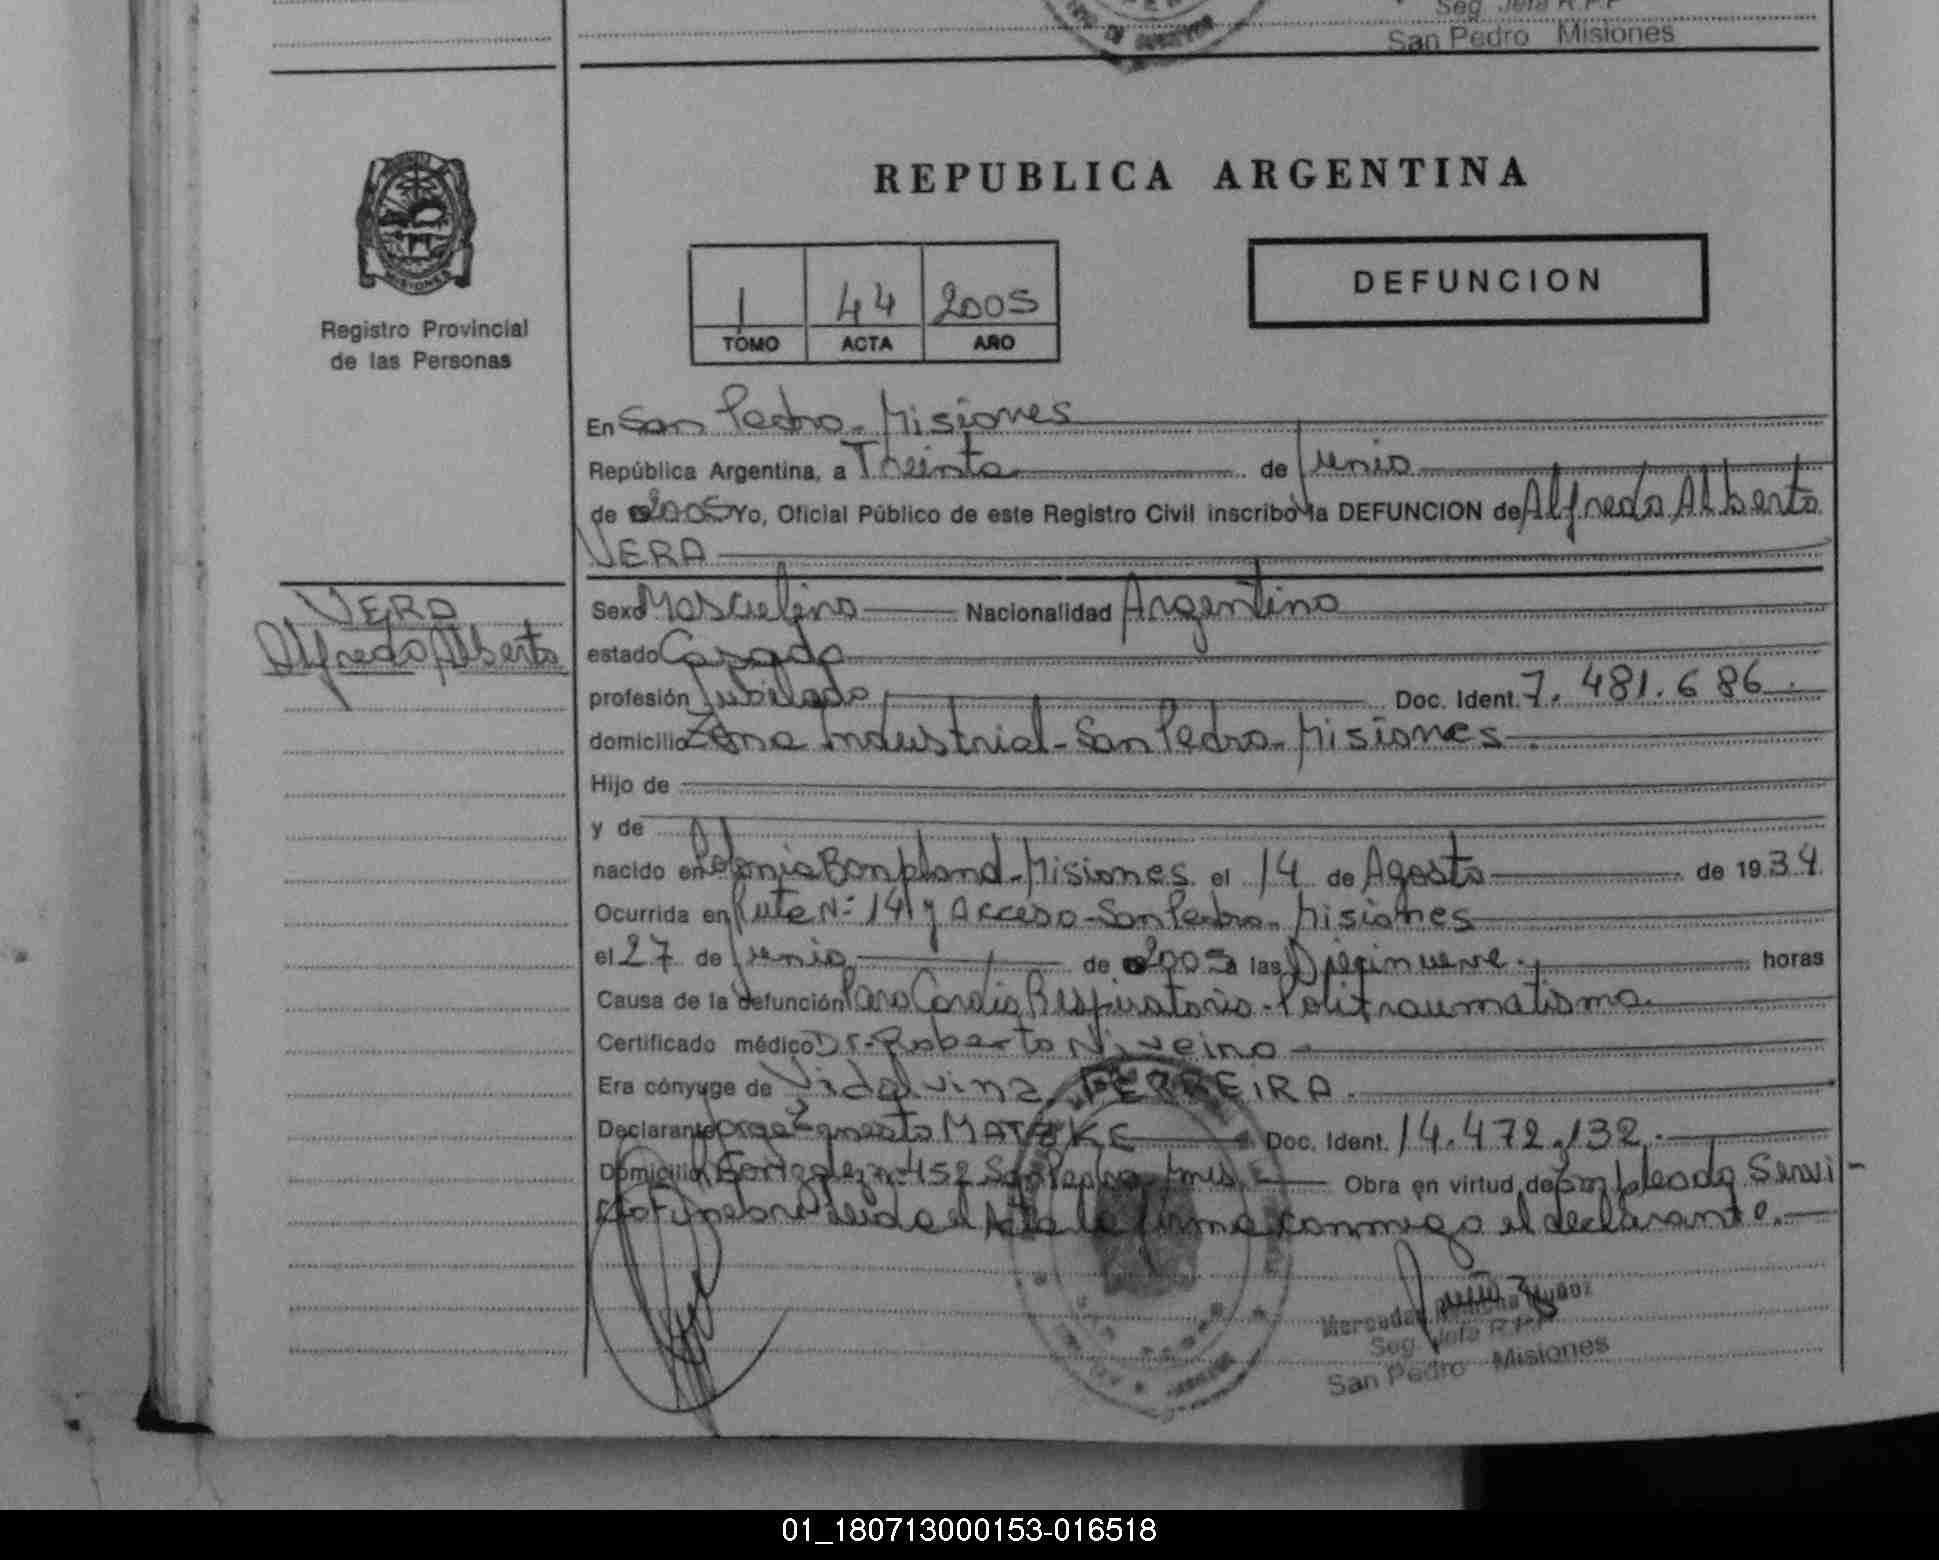 Seg. Jefa R.P.P
San Pedro Misiones
MISIONES
Registro Provincial
de las Personas
REPUBLICA ARGENTINA
1 44 2005
TOMO ACTA AÑO
DEFUNCION
En San Pedro - Misiones
República Argentina, a Treinta de Junio
de 2005 Yo, Oficial Público de este Registro Civil inscribo la DEFUNCION de Alfredo Alberto
VERA
VERA
Alfredo Alberto
Sexo Masculino Nacionalidad Argentino
estado Casado
profesión Jubilado Doc. Ident. 7.481.686.
domicilio Zona Industrial - San Pedro - Misiones.
Hijo de
y de
nacido en Colonia Bonpland - Misiones el 14 de Agosto de 1934.
Ocurrida en Ruta Nº 14 y Acceso - San Pedro - Misiones
el 27 de Junio de 2005 a las Diecinueve. horas
Causa de la defunción Paro Cardio Respiratorio - Politraumatismo.
Certificado médico Dr. Roberto Niveiro
Era cónyuge de Vidalvina FERREIRA.
Declarante Jorge Ernesto Doc. Ident. 14.472.132.
Domicilio nº 452 San Pedro Mnes. Obra en virtud de Empleado Servi-
cio Fúnebre leida el Acta la firma conmigo el declarante.
Seg. Jefa R.P.P
San Pedro Misiones
01_180713000153-016518